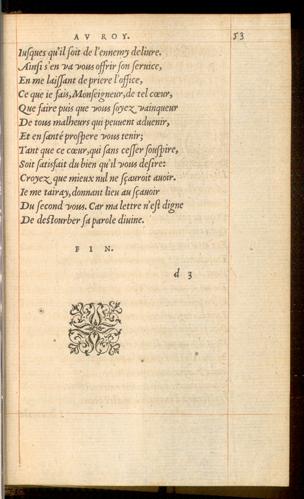 AV ROY. 53
Iusques qu'il soit de l'ennemy deliure.
Ainsi s'en va vous offrir son seruice,
En me laissant de priere l'office,
Ce que ie fais, Monseigneur, de tel cœur,
Que faire puis que vous soyez vainqueur
De tous malheurs qui peuuent aduenir,
Et en santé prospere vous tenir;
Tant que ce cœur, qui sans cesser souspire,
Soit satisfait du bien qu'il vous desire:
Croyez que mieux nul ne sçauroit auoir.
Ie me tairay, donnant lieu au sçauoir
Du second vous. Car ma lettre n'est digne
De destourber sa parole diuine.
FIN.
d 3